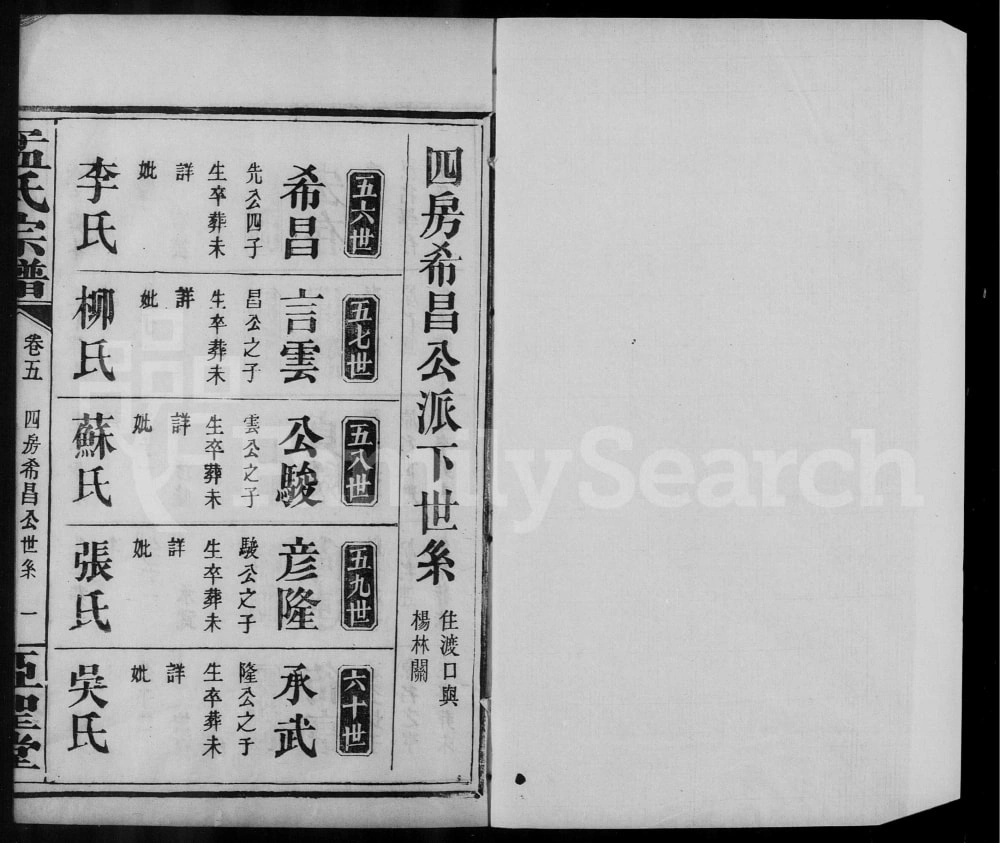 四房希昌公派下世系
住渡口與
楊林關
五六世
希昌
先公四子
生卒葬未
詳
妣
李氏
五七世
言雲
昌公之子
生卒葬未
詳
妣
柳氏
五八世
公駿
雲公之子
生卒葬未
詳
妣
蘇氏
五九世
彥隆
駿公之子
生卒葬未
詳
妣
張氏
六十世
承武
隆公之子
生卒葬未
詳
妣
吳氏
孟氏宗譜
卷五
四房希昌公世系
一
亞聖堂
FamilySearch